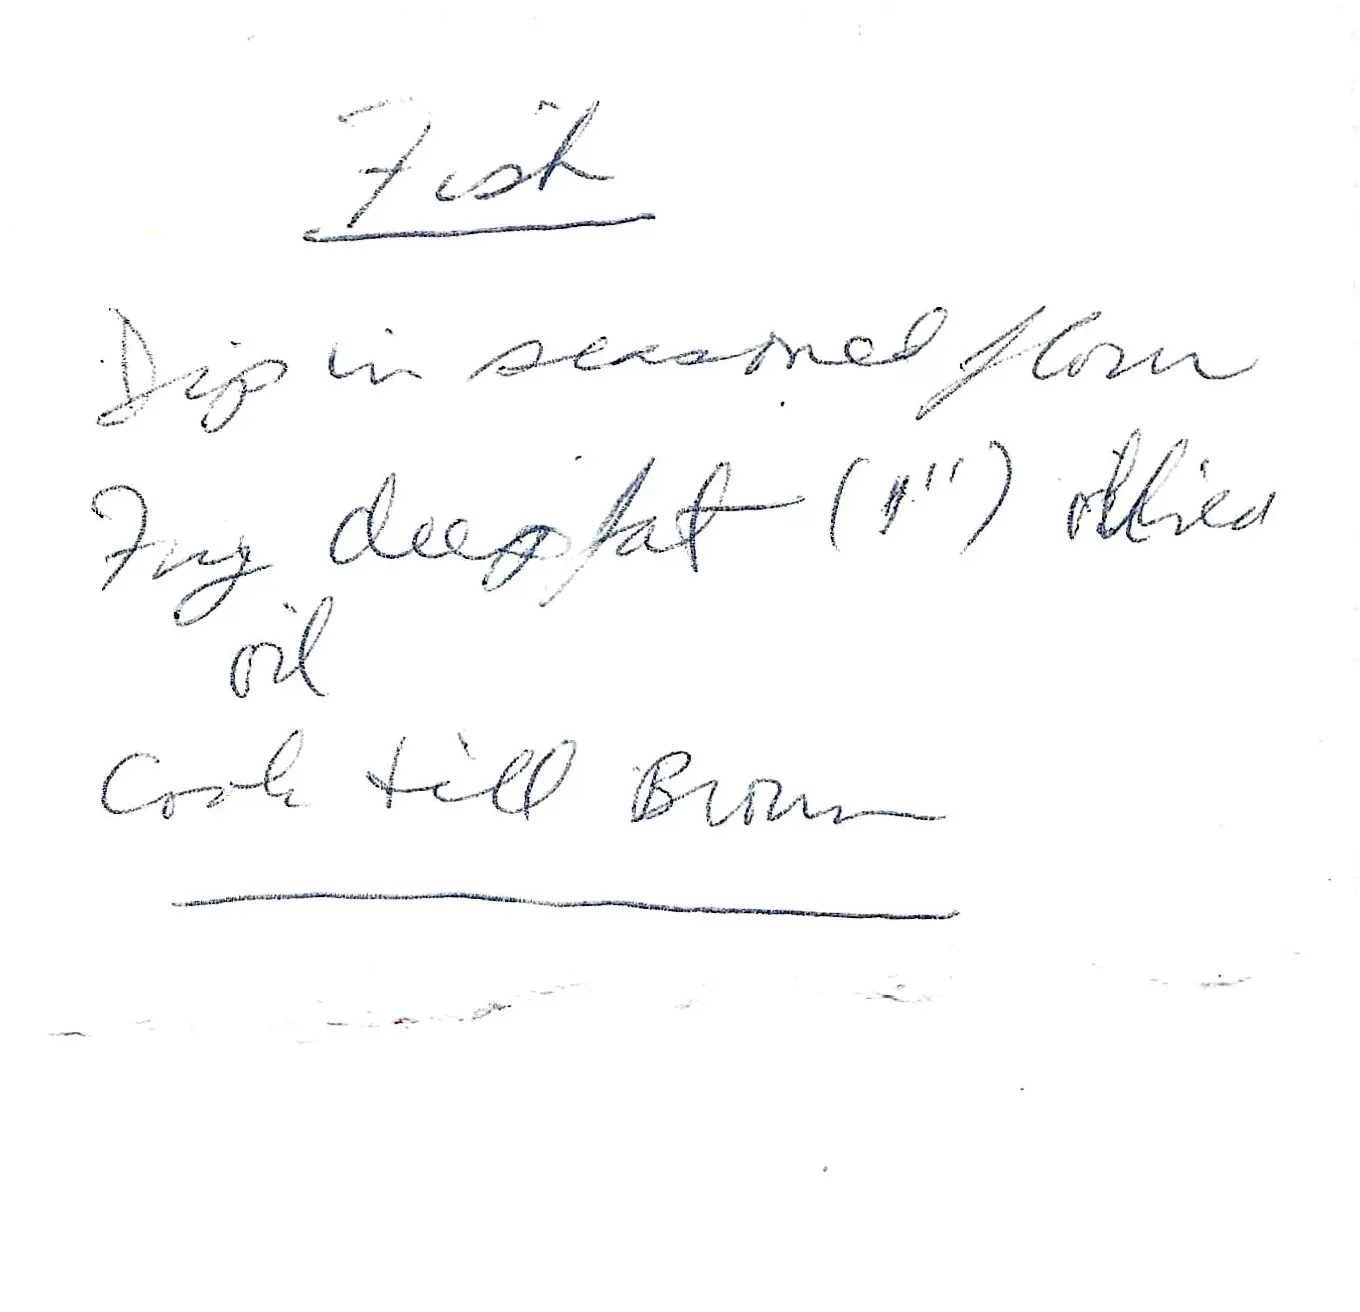 Fish
Dip in seasoned flour
Fry deep fat (1")
oil
Cook till Brown